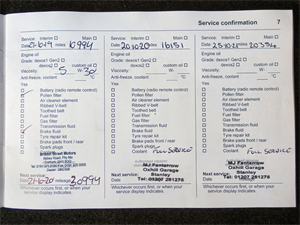 Service confirmation 7
Service: Interim Main
Date 21-10-19 miles 10994
Engine oil
Grade: dexos1 Gen2
dexos2 custom oil
Viscosity: 5 W- 30
Anti-freeze, coolant: °C
Battery (radio remote control)
Pollen filter
Air cleaner element
Ribbed V-belt
Toothed belt
Fuel filter
Gas filter
Transmission fluid
Brake fluid
Tyre repair kit
Brake pads front / rear
Spark plugs
Coolant
Bristol Street Motors
Next service:
Date 21-10-20 mileage 20994
Whichever occurs first, or when your
service display indicates.
Service: Interim Main
Date 20.10.20 miles 16151
Engine oil
Grade: dexos1 Gen2
dexos2 custom oil
Viscosity: W-
Anti-freeze, coolant: °C
Battery (radio remote control)
Pollen filter
Air cleaner element
Ribbed V-belt
Toothed belt
Fuel filter
Gas filter
Transmission fluid
Brake fluid
Tyre repair kit
Brake pads front / rear
Spark plugs
Coolant Full SERVICE
MJ Fantarrow
Oxhill Garage
Stanley
Tel: 01207 281276
Whichever occurs first, or when your
service display indicates.
Service: Interim Main
Date 25-10-21 miles 20356
Engine oil
Grade: dexos1 Gen2
dexos2 custom oil
Viscosity: W-
Anti-freeze, coolant: °C
Battery (radio remote control)
Pollen filter
Air cleaner element
Ribbed V-belt
Toothed belt
Fuel filter
Gas filter
Transmission fluid
Brake fluid
Tyre repair kit
Brake pads front / rear
Spark plugs
Coolant Full SERVICE
MJ Fantarrow
Oxhill Garage
Stanley
Tel: 01207 281276
Whichever occurs first, or when your
service display indicates.